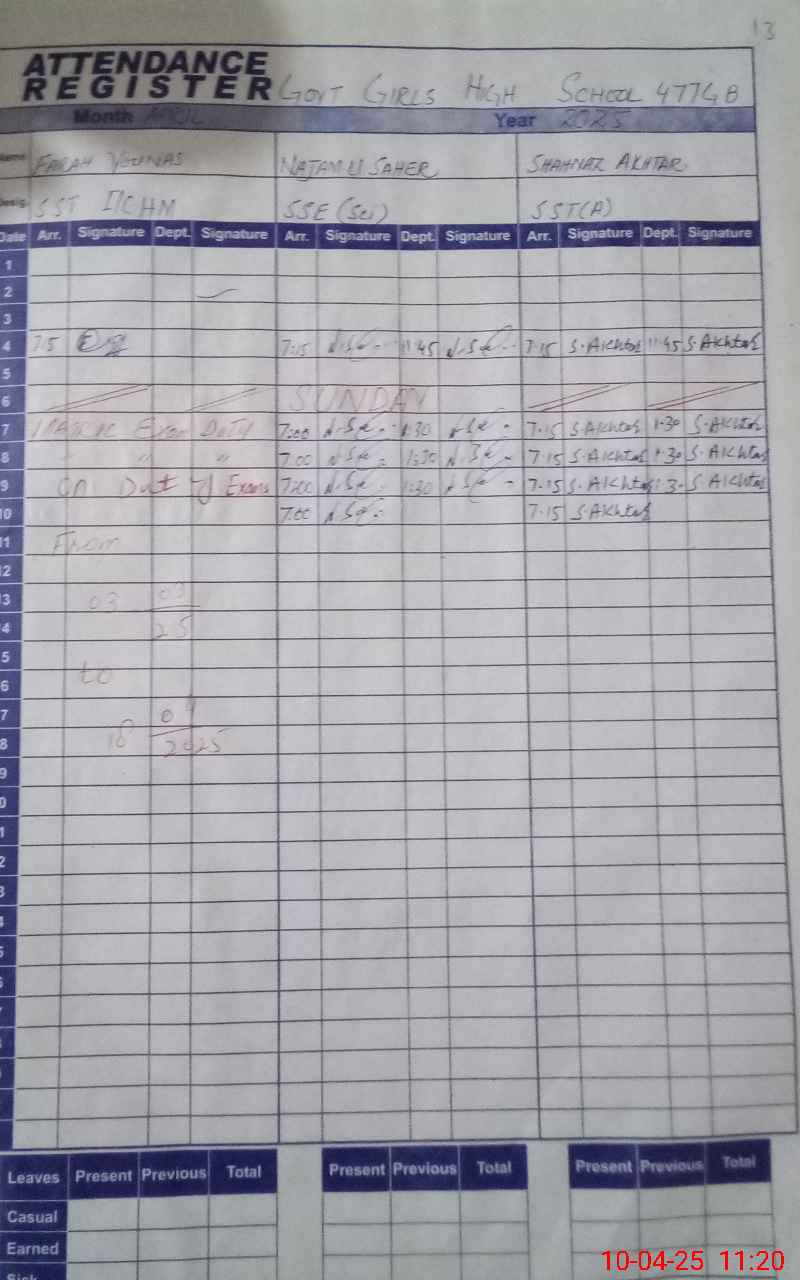 13
ATTENDANCE
REGISTER GOVT GIRLS HIGH SCHOOL 477GB
Month APRIL Year 2025
Name FARAH YOUNAS NAJAM U SAHER SHAHNAZ AKHTAR
Desig. SST I/C HM SSE (Sci) SST(A)
Date Arr. Signature Dept. Signature Arr. Signature Dept. Signature Arr. Signature Dept. Signature
1
2
3
4 7:15 11:45 7:15 S.Akhtar 11:45 S.Akhtar
5
6 SUNDAY
7 MATRIC Exam DUTY 7:00 1:30 7:15 S.Akhtar 1:30 S.Akhtar
8 " " 7:00 1:30 7:15 S.Akhtar 1:30 S.Akhtar
9 On Duty Exams 7:00 1:30 7:15 S.Akhtar S.Akhtar
10 7:00 7:15 S.Akhtar
11 From
12
3 03 03
4 25
5
6 to
7
8 2025
9
0
1
2
3
4
5
Leaves Present Previous Total Present Previous Total Present Previous Total
Casual
Earned
Sick
10-04-25 11:20